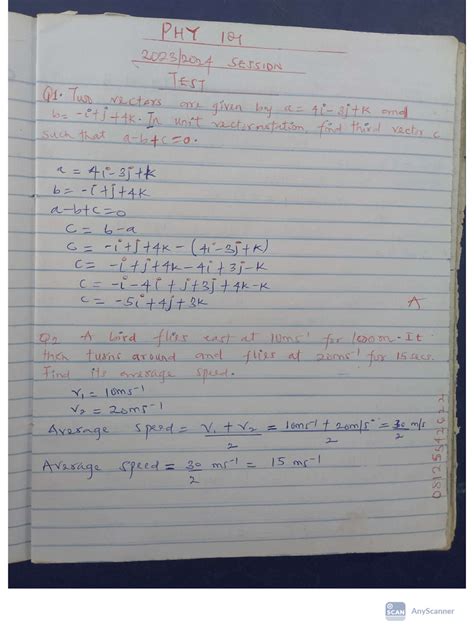 PHY 121
2023/2024 SESSION
TEST
Q1. Two vectors are given by a = 4i-3j+k and
b=-i+j+4k. In unit vector notation find third vector c
such that a-b+c=0.
a = 4i-3j+k
b = -i+j+4k
a-b+c=0
c = b-a
c = -i+j+4k-(4i-3j+k)
c = -i+j+4k-4i+3j-k
c = -i-4i+j+3j+4k-k
c = -5i+4j+3k
A
Q2 A bird flies east at 10ms⁻¹ for 100m. It
then turns around and flies at 20ms⁻¹ for 15secs.
Find its average speed.
V₁ = 10ms⁻¹
V₂ = 20ms⁻¹
Average speed = V₁ + V₂/2 = 10ms⁻¹ + 20m/s/2 = 30 m/s/2
Average speed = 30/2 ms⁻¹ = 15 ms⁻¹
SCAN AnyScanner